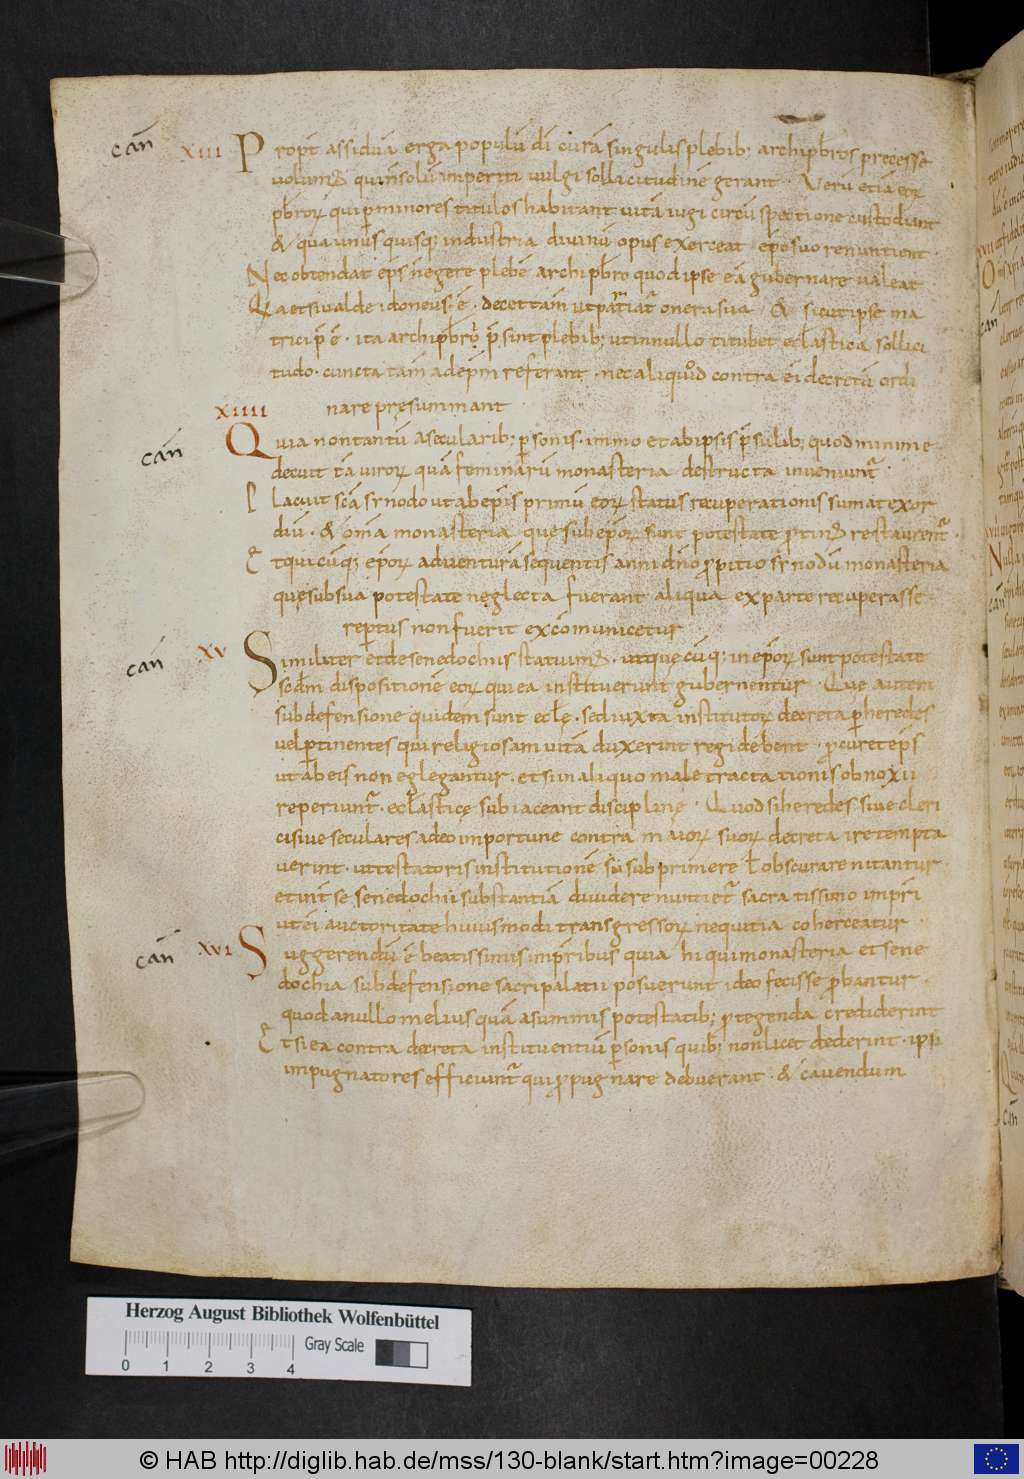 can̄ XIII Propt̄ assiduā erga populū dī curā singulis plebib; archipb̄ros preesse
volum᷒ qui n̄ solū imperiti vulgi sollicitudinē gerant · Verū etiā eoꝝ
pb̄roꝝ qui ꝑ minores titulos habitant vitā iugi circūspectione custodiant
& qua unus quisq; industria divinū opus exerceat ep̄o suo renuntient ·
Nec obtendat ep̄s n̄ egere plebē archipb̄ro quod ipse eā gubernare valeat
Qa etsi valde idoneus; ē · decet tam̄ ut partiat᷑ onera sua & sicut ipse ma
trici p̄ē · ita archipb̄ri p̄sint plebib; ut in nullo titubet ecl̄astica sollici
tudo · cuncta tam̄ ad ep̄m referant · nec aliquid contra ei decretū ordi
XIIII nare pręsummant
can̄ Quia non tantū a secularib; ꝑsonis · immo et ab ipsis p̄sulib; quod minime
decuit tā viroꝝ quā feminarū monasteria destructa inveniunt᷑ ·
Placuit scā synodo ut ab ep̄is primū eoꝝ status recuperationis sumat exor
diū · & om̄a monasteria quę sub ep̄oꝝ sunt potestate ꝓtin᷒ restaurent᷑ ·
Et quicūq; ep̄oꝝ ad venturā sequentis anni dn̄o ꝓpitio synodū monasteria
quę sub sua potestate neglecta fuerant aliqua ex parte recuperasse
rep̄tus non fuerit excōmunicetur
can̄ XV Similiter et de senedochiis statuim᷒ · ut quęcūq; in ep̄oꝝ sunt potestate
sc̄dm dispositionē eoꝝ qui ea instituerunt gubernentur · Que autem
sub defensione quidem sunt ecl̄ę · sed iuxta institutoꝝ decreta ꝑ heredes
vel ꝑtinentes qui religiosam vitā duxerint regi debent · ꝓcuret ep̄s
ut ab eis non eglegantur · et si in aliquo male tractationis obnoxii
reperiunt᷑ · ecl̄asticę subiaceant disciplinę · Quod si heredes sive cleri
ci sive seculares adeo importune contra maioꝝ suoꝝ decreta ire tempta
verint · ut testatoris institutionē suā subprimere l̄ obscurare nitantur ·
et int̄ se senedochii substantiā dividere nuntiet᷑ sacratissimo imp̄ri
ut ei auctoritate huiusmodi transgressoꝝ nequitia coherceatur ·
can̄ XVI Suggerendū ē beatissimis imp̄ribus quia hi qui monasteria et sene
dochia sub defensione sacri palatii posuerunt ideo fecisse ꝓbantur ·
quod a nullo melius quā a summis potestatib; ꝓtegenda crediderint
Et si ea contra decreta instituentiū ꝑsonis quib; non licet dederint · ipsi
impugnatores efficiunt᷑ qui ꝓpugnare debuerant · & cavendum
Herzog August Bibliothek Wolfenbüttel
Gray Scale
0 1 2 3 4
© HAB http://diglib.hab.de/mss/130-blank/start.htm?image=00228